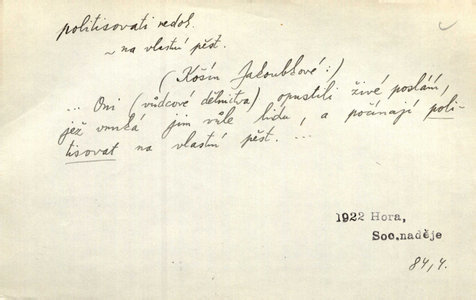 politisovati nedok.
~ na vlastní pěst.
(Košín Jakoubkové:)
... Oni (vůdcové dělnictva) opustili živé poslání,
jež vnuká jim vůle lidu, a počínají poli-
tisovat na vlastní pěst. ...
1922 Hora,
Soc.naděje
84,4.